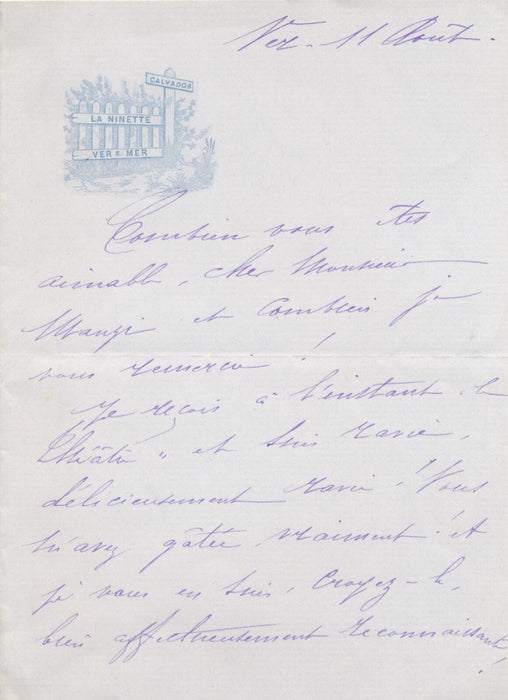 Ver. 11 Août.
CALVADOS
LA NINETTE
VER S. MER
Combien vous êtes
aimable, cher Monsieur
Manzi et combien je
vous remercie !
Je reçois à l'instant "le
Théâtre" et suis ravie,
délicieusement ravie ! Vous
m'avez gâtée vraiment ! et
je vous en suis, croyez-le,
bien affectueusement reconnaissante !